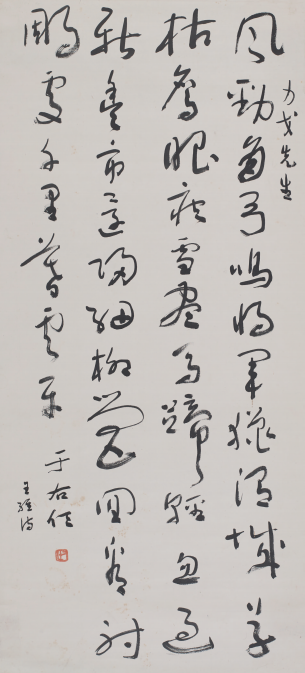 力戈先生
風勁角弓鳴將軍獵渭城草
枯鷹眼疾雪盡馬蹄輕忽過
新豐市還歸細柳營回看射
鵰處千里暮雲平
于右任
王維詩